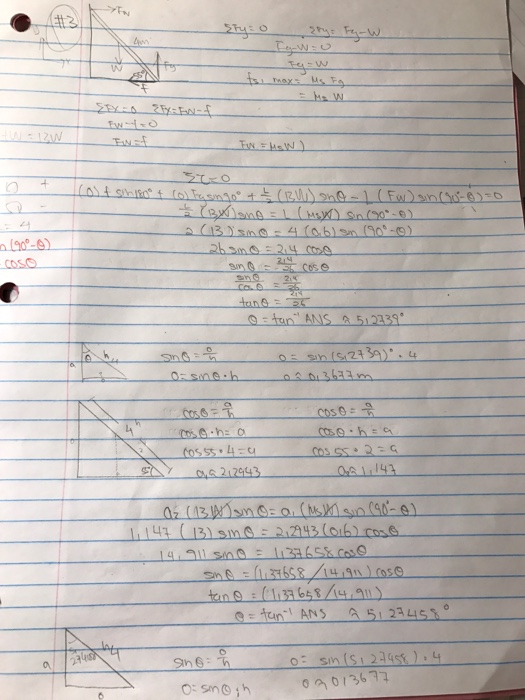 #3
Fw
4m
W
Fg
55°
f
ΣFy=0 ΣFy= Fg-W
Fg-W=0
Fg=W
fs, max= Ms Fg
= Ms W
ΣFx=0 ΣFx=Fw-f
Fw-f=0
Fw=f Fw=MsW)
W=12W
Στ=0
(0) f sin180° + (0) Fg sin90° + L/2 (13W) sinθ - L (Fw) sin(90°-θ)=0
L/2 (13W) sinθ = L (MsW) sin (90°-θ)
2 (13) sinθ = 4 (0,6) sin (90°-θ)
26 sinθ = 2,4 cosθ
sinθ = 2,4/26 cosθ
sinθ/cosθ = 2,4/26
tanθ = 2,4/26
θ = tan⁻¹ ANS ≈ 5,2739°
+
-
= 4
n (90°-θ)
cosθ
a θ h4
sinθ = o/h o = sin (5,2739)° . 4
o = sinθ . h o ≈ 0,3677m
4 h
cosθ = a/h cosθ = a/h
cosθ . h = a cosθ . h = a
cos55 . 4 = a cos55 . 2 = a
a₁ ≈ 2,2943 a₂ ≈ 1,147
a₂ (13W) sinθ = a₁ (MsW) sin (90°-θ)
1,147 (13) sinθ = 2,2943 (0,6) cosθ
14,911 sinθ = 1,37658 cosθ
sinθ = (1,37658/14,911) cosθ
tanθ = (1,37658/14,911)
θ = tan⁻¹ ANS ≈ 5,27458°
a h4
o
sinθ = o/h o = sin (5,27458) . 4
o = sinθ . h o ≈ 0,3677